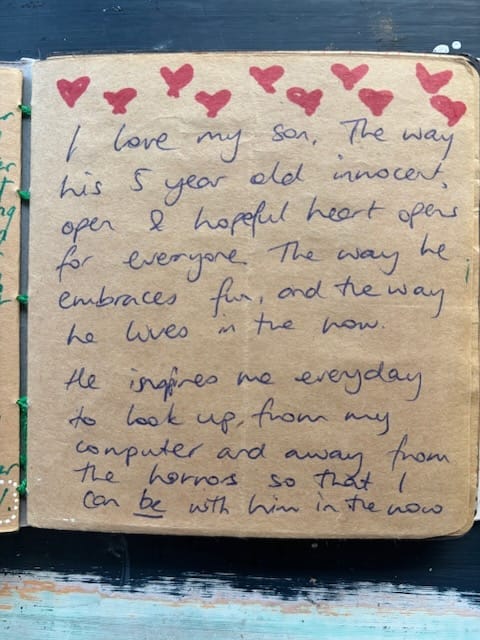 I love my son. The way
his 5 year old innocent,
open & hopeful heart opens
for everyone. The way he
embraces fun, and the way
he lives in the now.
He inspires me everyday
to look up, from my
computer and away from
the horrors so that I
can be with him in the now